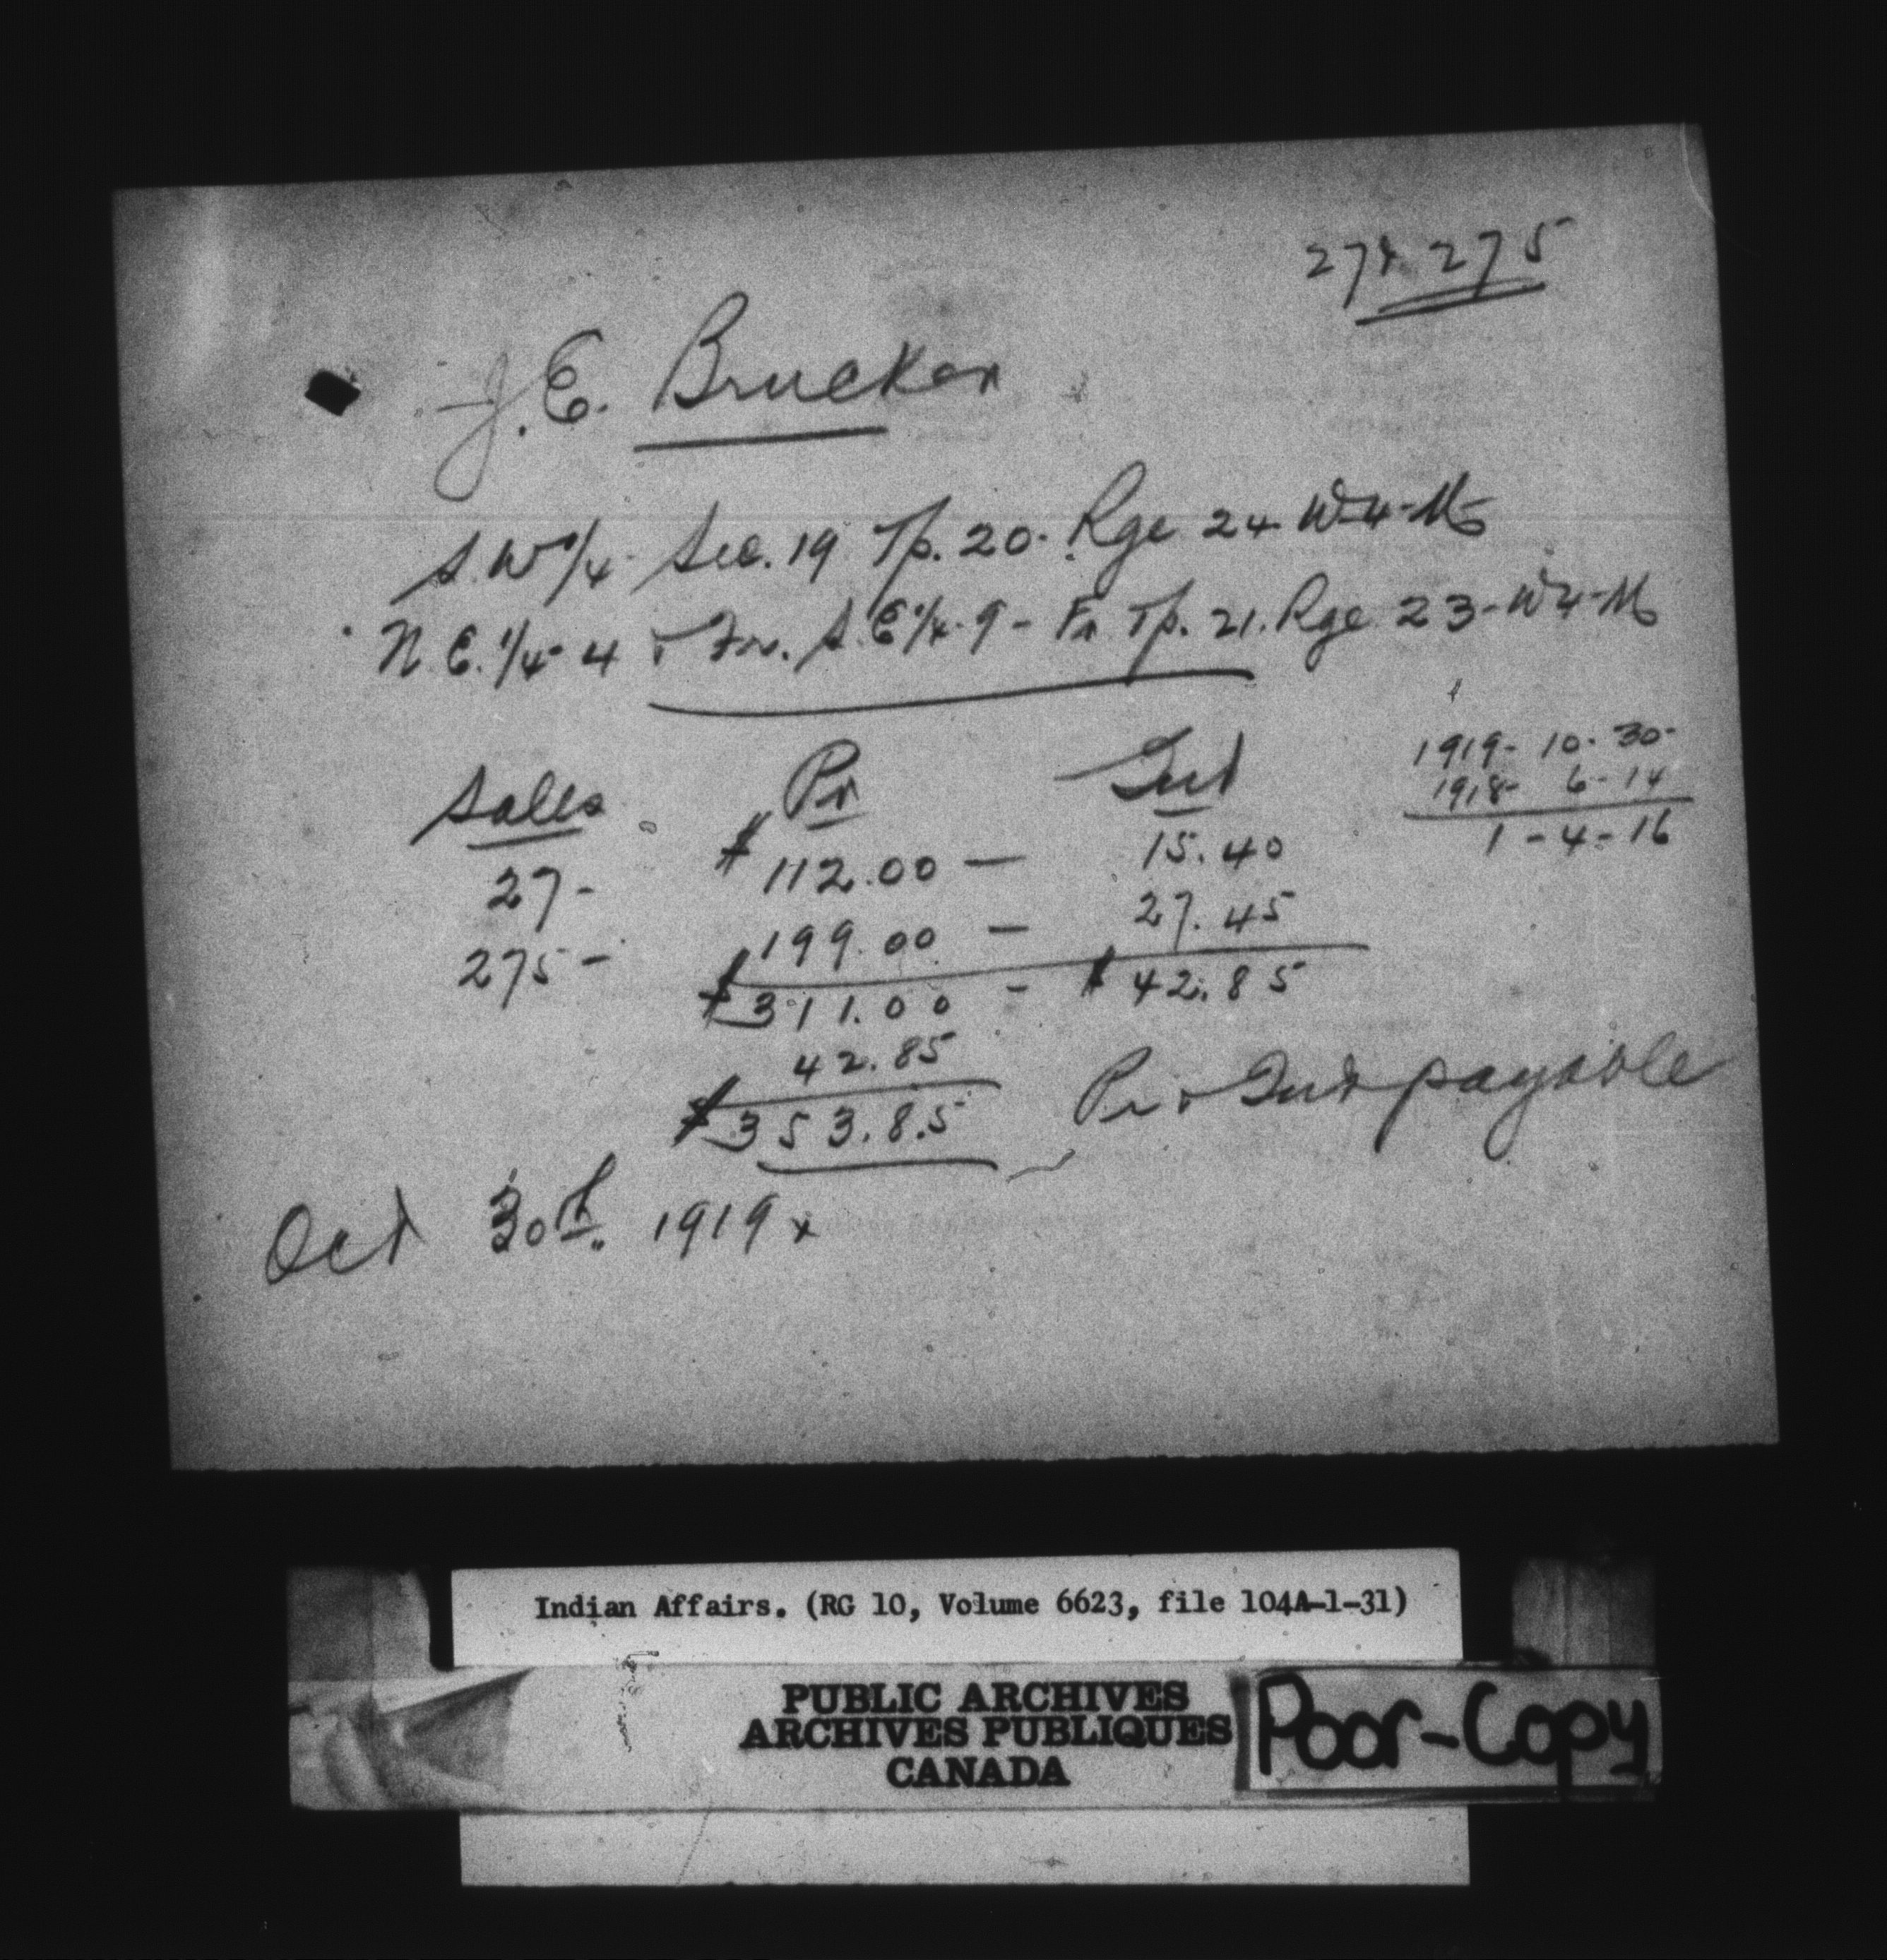 27 & 275
J. E. Brucker
S.W 1/4 - Sec. 19 Tp. 20. Rge 24 W-4-M
N.E. 1/4 - 4 & Fr. S.E 1/4 - 9 - Fr. Tp. 21. Rge 23 - W4-M
Sales Pr Int
1919 - 10 - 30 -
1918 - 6 - 14
1 - 4 - 16
27 - $112.00 — 15.40
275 - 199.00 — 27.45
$311.00 - $42.85
42.85
$353.85 Pr & Int payable
Oct 30th 1919
Indian Affairs. (RG 10, Volume 6623, file 104A-1-31)
PUBLIC ARCHIVES
ARCHIVES PUBLIQUES
CANADA
Poor-Copy